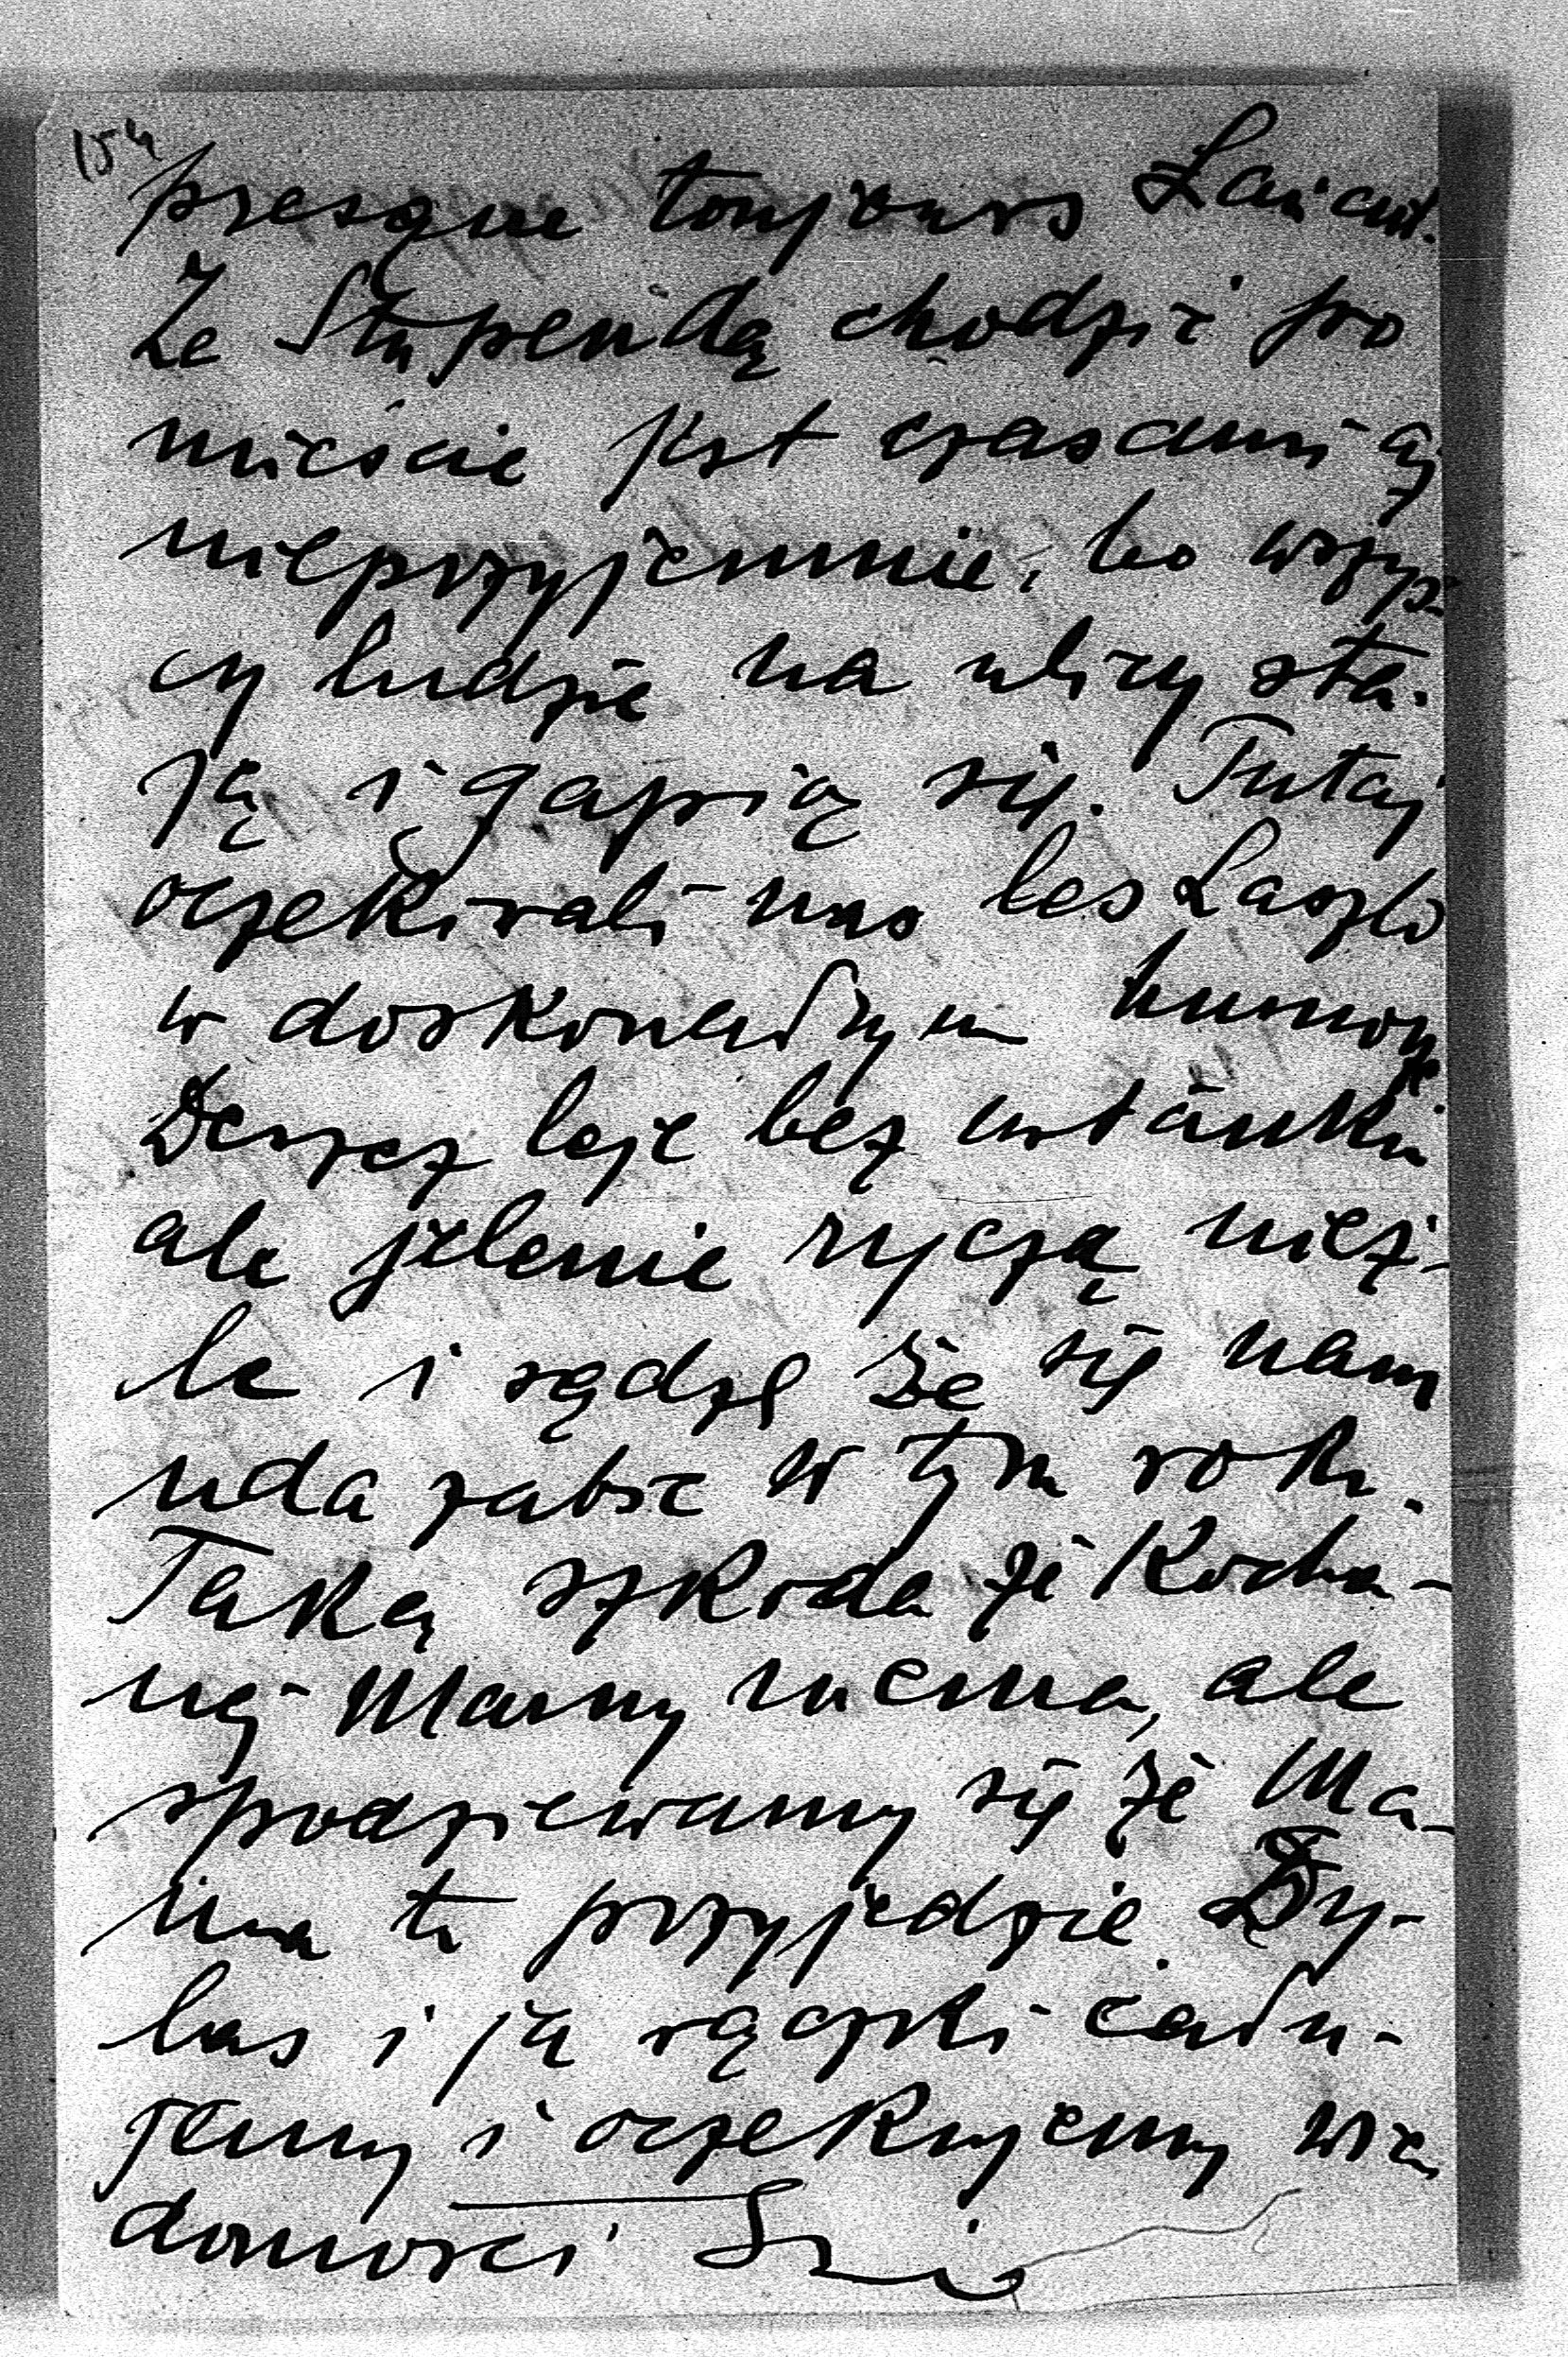 154
presque toujours Łańcut.
Ze Stupendą chodzić po
mieście jest czasami aż
nieprzyjemnie, bo wszys-
cy ludzie na ulicy sta-
ją i gapią się. Tutaj
oczekiwali nas les Laszlo
w doskonałym humorze.
Deszcz leje bez ustanku
ale jelenie ryczą nieź-
le i sądzę że się nam
uda zabić w tym roku.
Taką szkoda że Kocha-
nej Mamy niema, ale
spodziewamy się że Ma-
ma tu przyjedzie.
las i ja rączki cału-
jemy i oczekujemy wia
domości